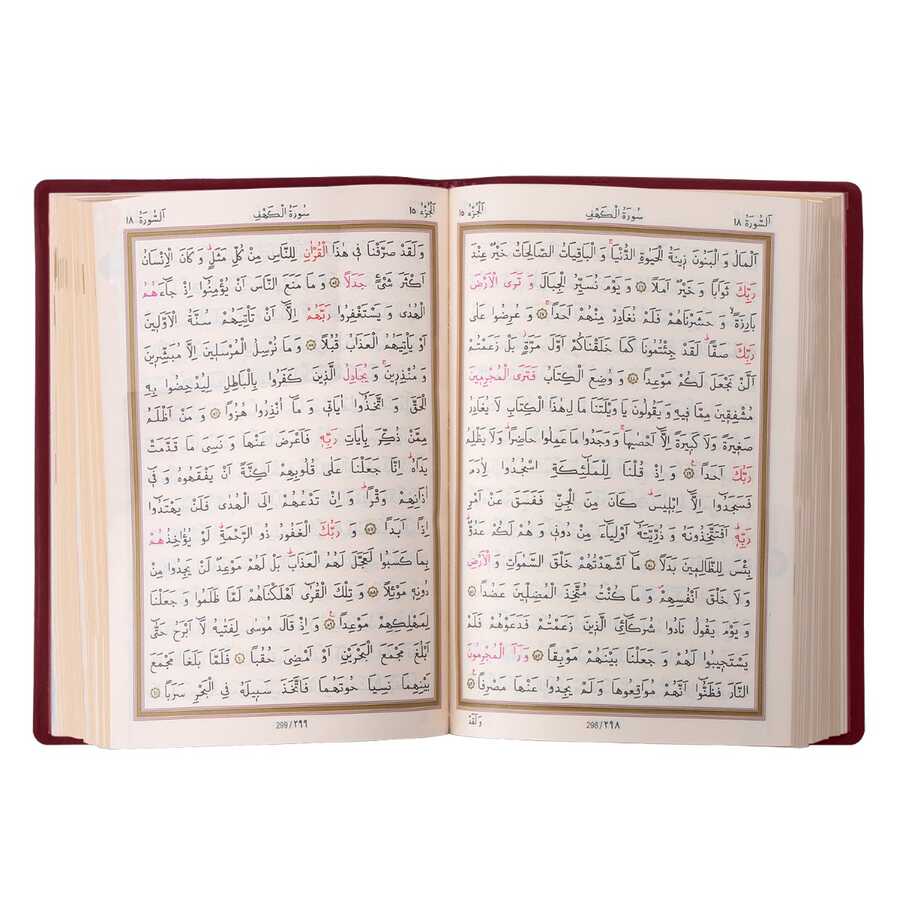 اَلسُّورَةُ ١٨ سُورَةُ الْكَهْفِ اَلْجُزْءُ ١٥
اَلْمَالُ وَ الْبَنُونَ زِينَةُ الْحَيٰوةِ الدُّنْيَاۚ وَ الْبَاقِيَاتُ الصَّالِحَاتُ خَيْرٌ عِنْدَ
رَبِّكَ ثَوَابًا وَ خَيْرٌ اَمَلًا ﴿٤٦﴾ وَ يَوْمَ نُسَيِّرُ الْجِبَالَ وَ تَرَى الْاَرْضَ
بَارِزَةًۙ وَ حَشَرْنَاهُمْ فَلَمْ نُغَادِرْ مِنْهُمْ اَحَدًاۚ ﴿٤٧﴾ وَ عُرِضُوا عَلٰى
رَبِّكَ صَفًّاۜ لَقَدْ جِئْتُمُونَا كَمَا خَلَقْنَاكُمْ اَوَّلَ مَرَّةٍۘ بَلْ زَعَمْتُمْ
اَلَّنْ نَجْعَلَ لَكُمْ مَوْعِدًا ﴿٤٨﴾ وَ وُضِعَ الْكِتَابُ فَتَرَى الْمُجْرِمِينَ
مُشْفِقِينَ مِمَّا فِيهِ وَ يَقُولُونَ يَا وَيْلَتَنَا مَالِ هٰذَا الْكِتَابِ لَا يُغَادِرُ
صَغِيرَةً وَ لَا كَبِيرَةً اِلَّٓا اَحْصٰيهَاۚ وَ وَجَدُوا مَا عَمِلُوا حَاضِرًاۜ وَ لَا يَظْلِمُ
رَبُّكَ اَحَدًا۟ ﴿٤٩﴾ وَ اِذْ قُلْنَا لِلْمَلٰٓئِكَةِ اسْجُدُوا لِاٰدَمَ
فَسَجَدُٓوا اِلَّٓا اِبْلِيسَۜ كَانَ مِنَ الْجِنِّ فَفَسَقَ عَنْ اَمْرِ
رَبِّهٖۜ اَفَتَتَّخِذُونَهُ وَ ذُرِّيَّتَهُٓ اَوْلِيَٓاءَ مِنْ دُونٖى وَ هُمْ لَكُمْ عَدُوٌّۜ
بِئْسَ لِلظَّالِمِينَ بَدَلًا ﴿٥٠﴾ مَٓا اَشْهَدْتُهُمْ خَلْقَ السَّمٰوَاتِ وَ الْاَرْضِ
وَ لَا خَلْقَ اَنْفُسِهِمْࣕ وَ مَا كُنْتُ مُتَّخِذَ الْمُضِلِّينَ عَضُدًا ﴿٥١﴾
وَ يَوْمَ يَقُولُ نَادُوا شُرَكَٓائِىَ الَّذِينَ زَعَمْتُمْ فَدَعَوْهُمْ فَلَمْ
يَسْتَجِيبُوا لَهُمْ وَ جَعَلْنَا بَيْنَهُمْ مَوْبِقًا ﴿٥٢﴾ وَ رَاَ الْمُجْرِمُونَ
النَّارَ فَظَنُّٓوا اَنَّهُمْ مُوَاقِعُوهَا وَ لَمْ يَجِدُوا عَنْهَا مَصْرِفًا۟ ﴿٥٣﴾
298 / ٢٩٨
وَ لَقَدْ
اَلْجُزْءُ ١٥ سُورَةُ الْكَهْفِ اَلسُّورَةُ ١٨
وَ لَقَدْ صَرَّفْنَا فٖى هٰذَا الْقُرْاٰنِ لِلنَّاسِ مِنْ كُلِّ مَثَلٍۜ وَ كَانَ الْاِنْسَانُ
اَكْثَرَ شَىْءٍ جَدَلًا ﴿٥٤﴾ وَ مَا مَنَعَ النَّاسَ اَنْ يُؤْمِنُٓوا اِذْ جَٓاءَهُمُ
الْهُدٰى وَ يَسْتَغْفِرُوا رَبَّهُمْ اِلَّٓا اَنْ تَاْتِيَهُمْ سُنَّةُ الْاَوَّلِينَ
اَوْ يَاْتِيَهُمُ الْعَذَابُ قُبُلًا ﴿٥٥﴾ وَ مَا نُرْسِلُ الْمُرْسَلِينَ اِلَّا مُبَشِّرِينَ
وَ مُنْذِرِينَۚ وَ يُجَادِلُ الَّذِينَ كَفَرُوا بِالْبَاطِلِ لِيُدْحِضُوا بِهِ
الْحَقَّ وَ اتَّخَذُٓوا اٰيَاتٖى وَ مَٓا اُنْذِرُوا هُزُوًا ﴿٥٦﴾ وَ مَنْ اَظْلَمُ
مِمَّنْ ذُكِّرَ بِاٰيَاتِ رَبِّهٖ فَاَعْرَضَ عَنْهَا وَ نَسِىَ مَا قَدَّمَتْ
يَدَاهُۜ اِنَّا جَعَلْنَا عَلٰى قُلُوبِهِمْ اَكِنَّةً اَنْ يَفْقَهُوهُ وَ فٖٓى
اٰذَانِهِمْ وَقْرًاۜ وَ اِنْ تَدْعُهُمْ اِلَى الْهُدٰى فَلَنْ يَهْتَدُٓوا
اِذًا اَبَدًا ﴿٥٧﴾ وَ رَبُّكَ الْغَفُورُ ذُو الرَّحْمَةِۜ لَوْ يُؤَاخِذُهُمْ
بِمَا كَسَبُوا لَعَجَّلَ لَهُمُ الْعَذَابَۜ بَلْ لَهُمْ مَوْعِدٌ لَنْ يَجِدُوا مِنْ
دُونِهٖ مَوْئِلًا ﴿٥٨﴾ وَ تِلْكَ الْقُرٰٓى اَهْلَكْنَاهُمْ لَمَّا ظَلَمُوا وَ جَعَلْنَا
لِمَهْلِكِهِمْ مَوْعِدًا۟ ﴿٥٩﴾ وَ اِذْ قَالَ مُوسٰى لِفَتٰيهُ لَٓا اَبْرَحُ حَتّٰٓى
اَبْلُغَ مَجْمَعَ الْبَحْرَيْنِ اَوْ اَمْضِىَ حُقُبًا ﴿٦٠﴾ فَلَمَّا بَلَغَا مَجْمَعَ
بَيْنِهِمَا نَسِيَا حُوتَهُمَا فَاتَّخَذَ سَبِيلَهُ فِى الْبَحْرِ سَرَبًا ﴿٦١﴾
299 / ٢٩٩